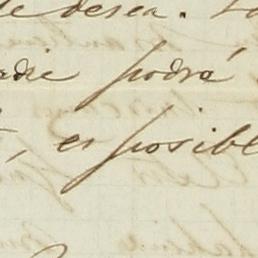 le desea. La
adie podrá
, es posible